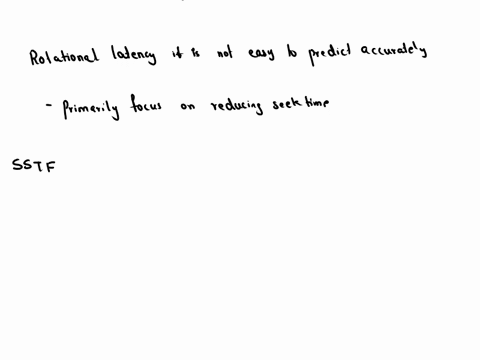 Rotational latency it is not easy to predict accurately
- Primarily focus on reducing seek time
SSTF